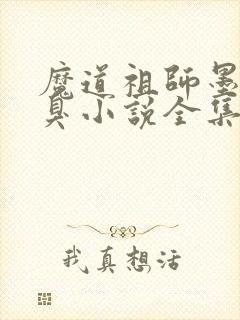 魔道祖師墨
臭小説全集
我真想活